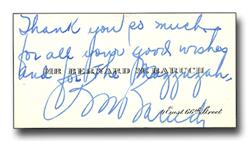 Thank you so much
for all your good wishes
and for the
MR BERNARD M BARUCH
BM Baruch
66th Street